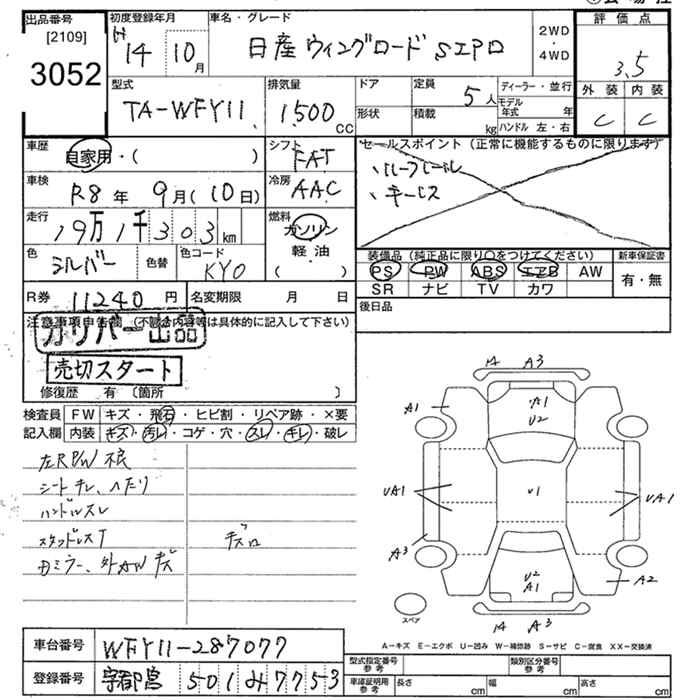 出品番号
[2109]
3052
初度登録年月
H
14 10月
車名・グレード
日産 ウィングロード Sエアロ
2WD
・
4WD
評価点
3.5
外装 内装
C C
型式
TA-WFY11
排気量
1500
CC
ドア
形状
定員
5人
積載
kg
ディーラー・並行
モデル年式 年
ハンドル 左・右
車歴
自家用・( )
シフト
FAT
セールスポイント(正常に機能するものに限ります)
、ルーフレール
、キーレス
車検
R8年 9月(10日)
冷房
AAC
走行
19万1千303km
燃料
ガソリン
軽・油
( )
色
シルバー
色替
色コード
KY0
装備品(純正品に限り○をつけてください)
PS PW ABS エアB AW
SR ナビ TV カワ
新車保証書
有・無
R券 11240円
名変期限 月 日
後日品
注意事項申告欄(不具合内容等は具体的に記入して下さい)
ガリバー出品
売切スタート
修復歴 有(箇所 )
検査員
記入欄
FW キズ・飛石・ヒビ割・リペア跡・×要
内装 キズ・汚レ・コゲ・穴・スレ・キレ・破レ
左RPW不良
シートキレ、ヘタリ
ハンドルスレ
スタッドレスT
キズ凹
Dミラー、外AWキズ
14 A3
A1
A1
U2
UA1
U1
UA1
A3
U2
A1
A2
スペア
14 A3
A-キズ E-エクボ U-凹み W-補修跡 S-サビ C-腐食 XX-交換済
車台番号 WFY11-287077
登録番号 宇都宮 501み7753
型式指定番号
参考
類別区分番号
参考
車庫証明用
参考
長さ cm 幅 cm 高さ cm